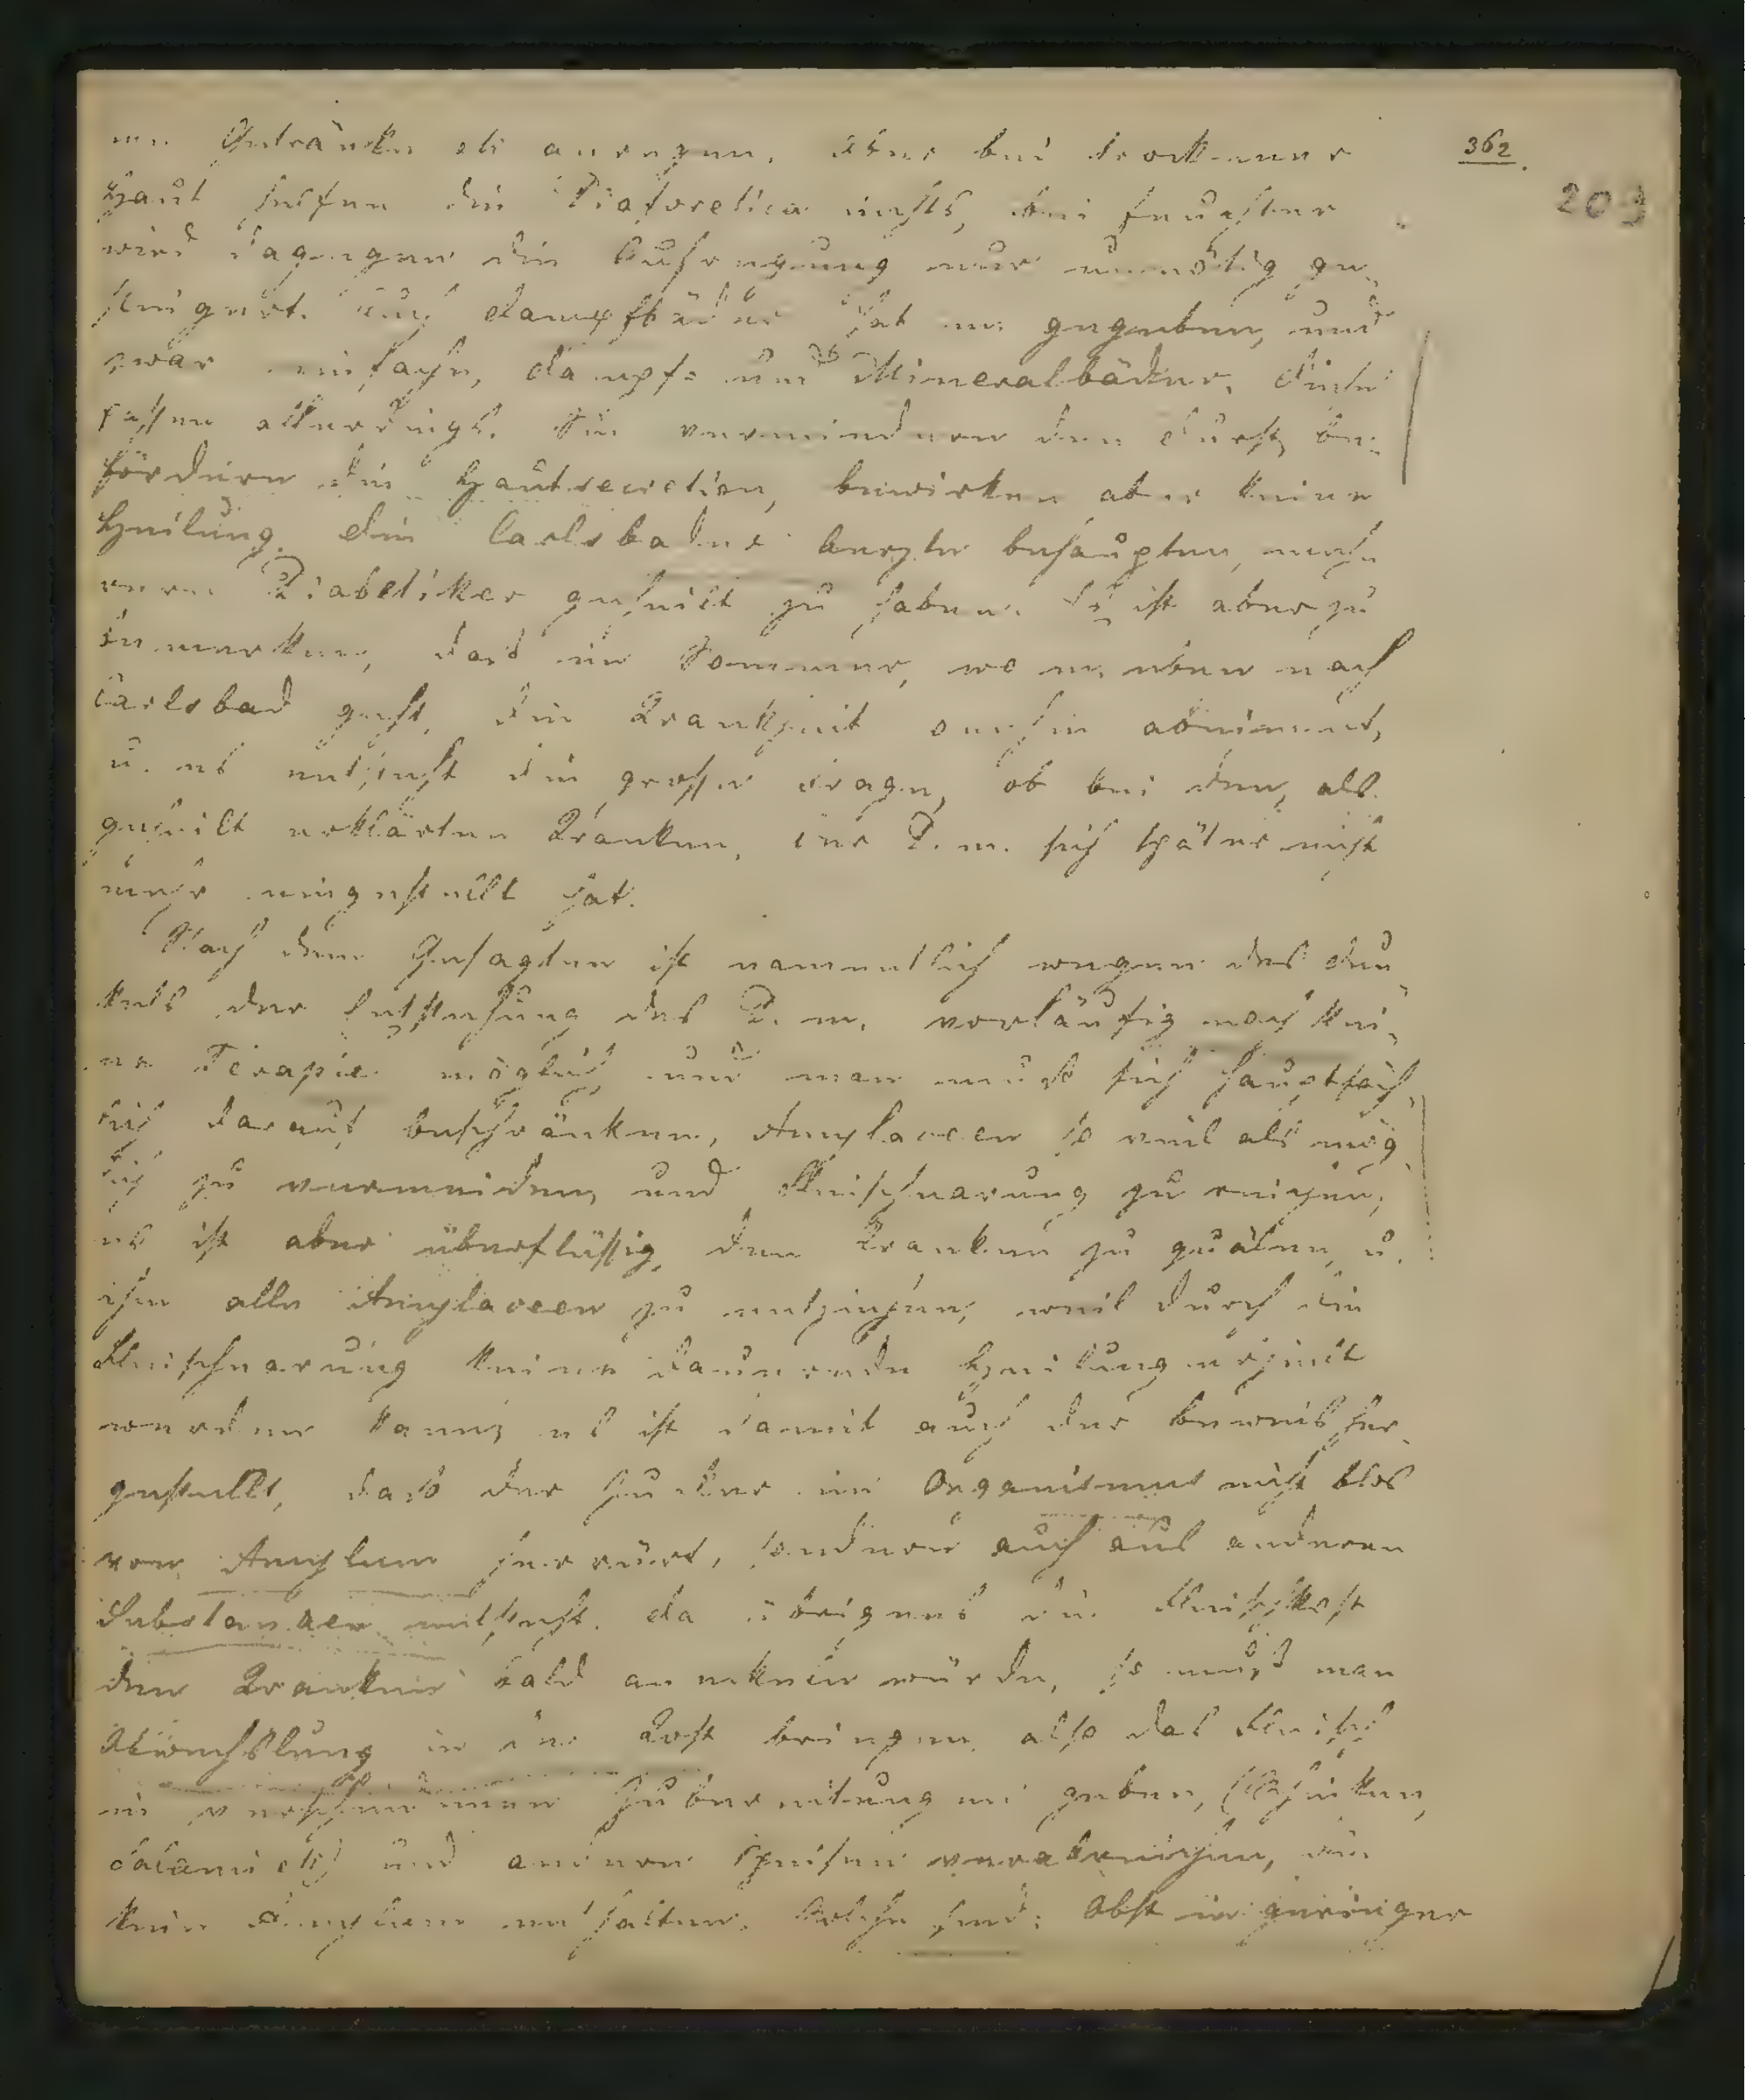 362.
209
me Getränke etc anregen. Aber bei trockener
Haut helfen die Diaforetica nichts, bei feuchter
wird dagegen die Aufregung nur unnötig ge¬
steigert. Auch Dampfbäder hat m. gegeben, und
zwar einfache, Dampf= und Mineralbäder. Diese
passen allerdings. Sie vermindern den Durst, be¬
fördern die Hautsecretion, bewirken aber keine
Heilung. Die Carlsbader Aerzte behaupten, mehre¬
re Diabetiker geheilt zu haben. Es ist aber zu
bemerken, dass im Sommer, wo m. eben nach
Carlsbad geht, die Krankheit onehin abnimmt,
u. es entsteht die grosse Frage, ob bei den, als
geheilt erklärten Kranken, der D. m. sich später nicht
mehr eingestellt hat.
Nach dem Gesagten ist namentlich wegen des Dun¬
kels der Entstehung des D. m. vorläufig noch kei¬
ne Terapie möglich, und man muss sich hauptsäch¬
lich darauf beschränken, Amylaceen so viel als mög¬
lich zu vermeiden, und Fleischnarung zu reichen;
es ist aber überflüssig, den Kranken zu quälen, u.
ihm alle Amylaceen zu entziehen, weil durch die
Fleischnarung keine dauernde Heilung erzielt
werden kann; es ist damit auch der Beweis her¬
gestellt, dass der Zucker im Organismus nicht blos
vom Amylum herrürt, sondern auch aus anderen
Substanzen entsteht. Da übrigens die Fleischkost
den Kranken bald anekeln würde, so muss man
Abwechslung in die Kost bringen, also das Fleisch
in verschiedener Zubereitung geben, (Schinken,
Salami etc) und andere Speisen verabreichen, die
kein Amylum enthalten. Solche sind: Obst in geringer